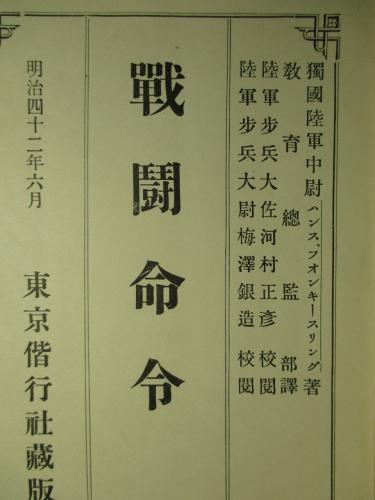 獨國陸軍中尉ハンス、フオンキースリング著
敎育總監部譯
陸軍步兵大佐河村正彥校閱
陸軍步兵大尉梅澤銀造校閱
戰鬪命令
明治四十二年六月
東京偕行社藏版